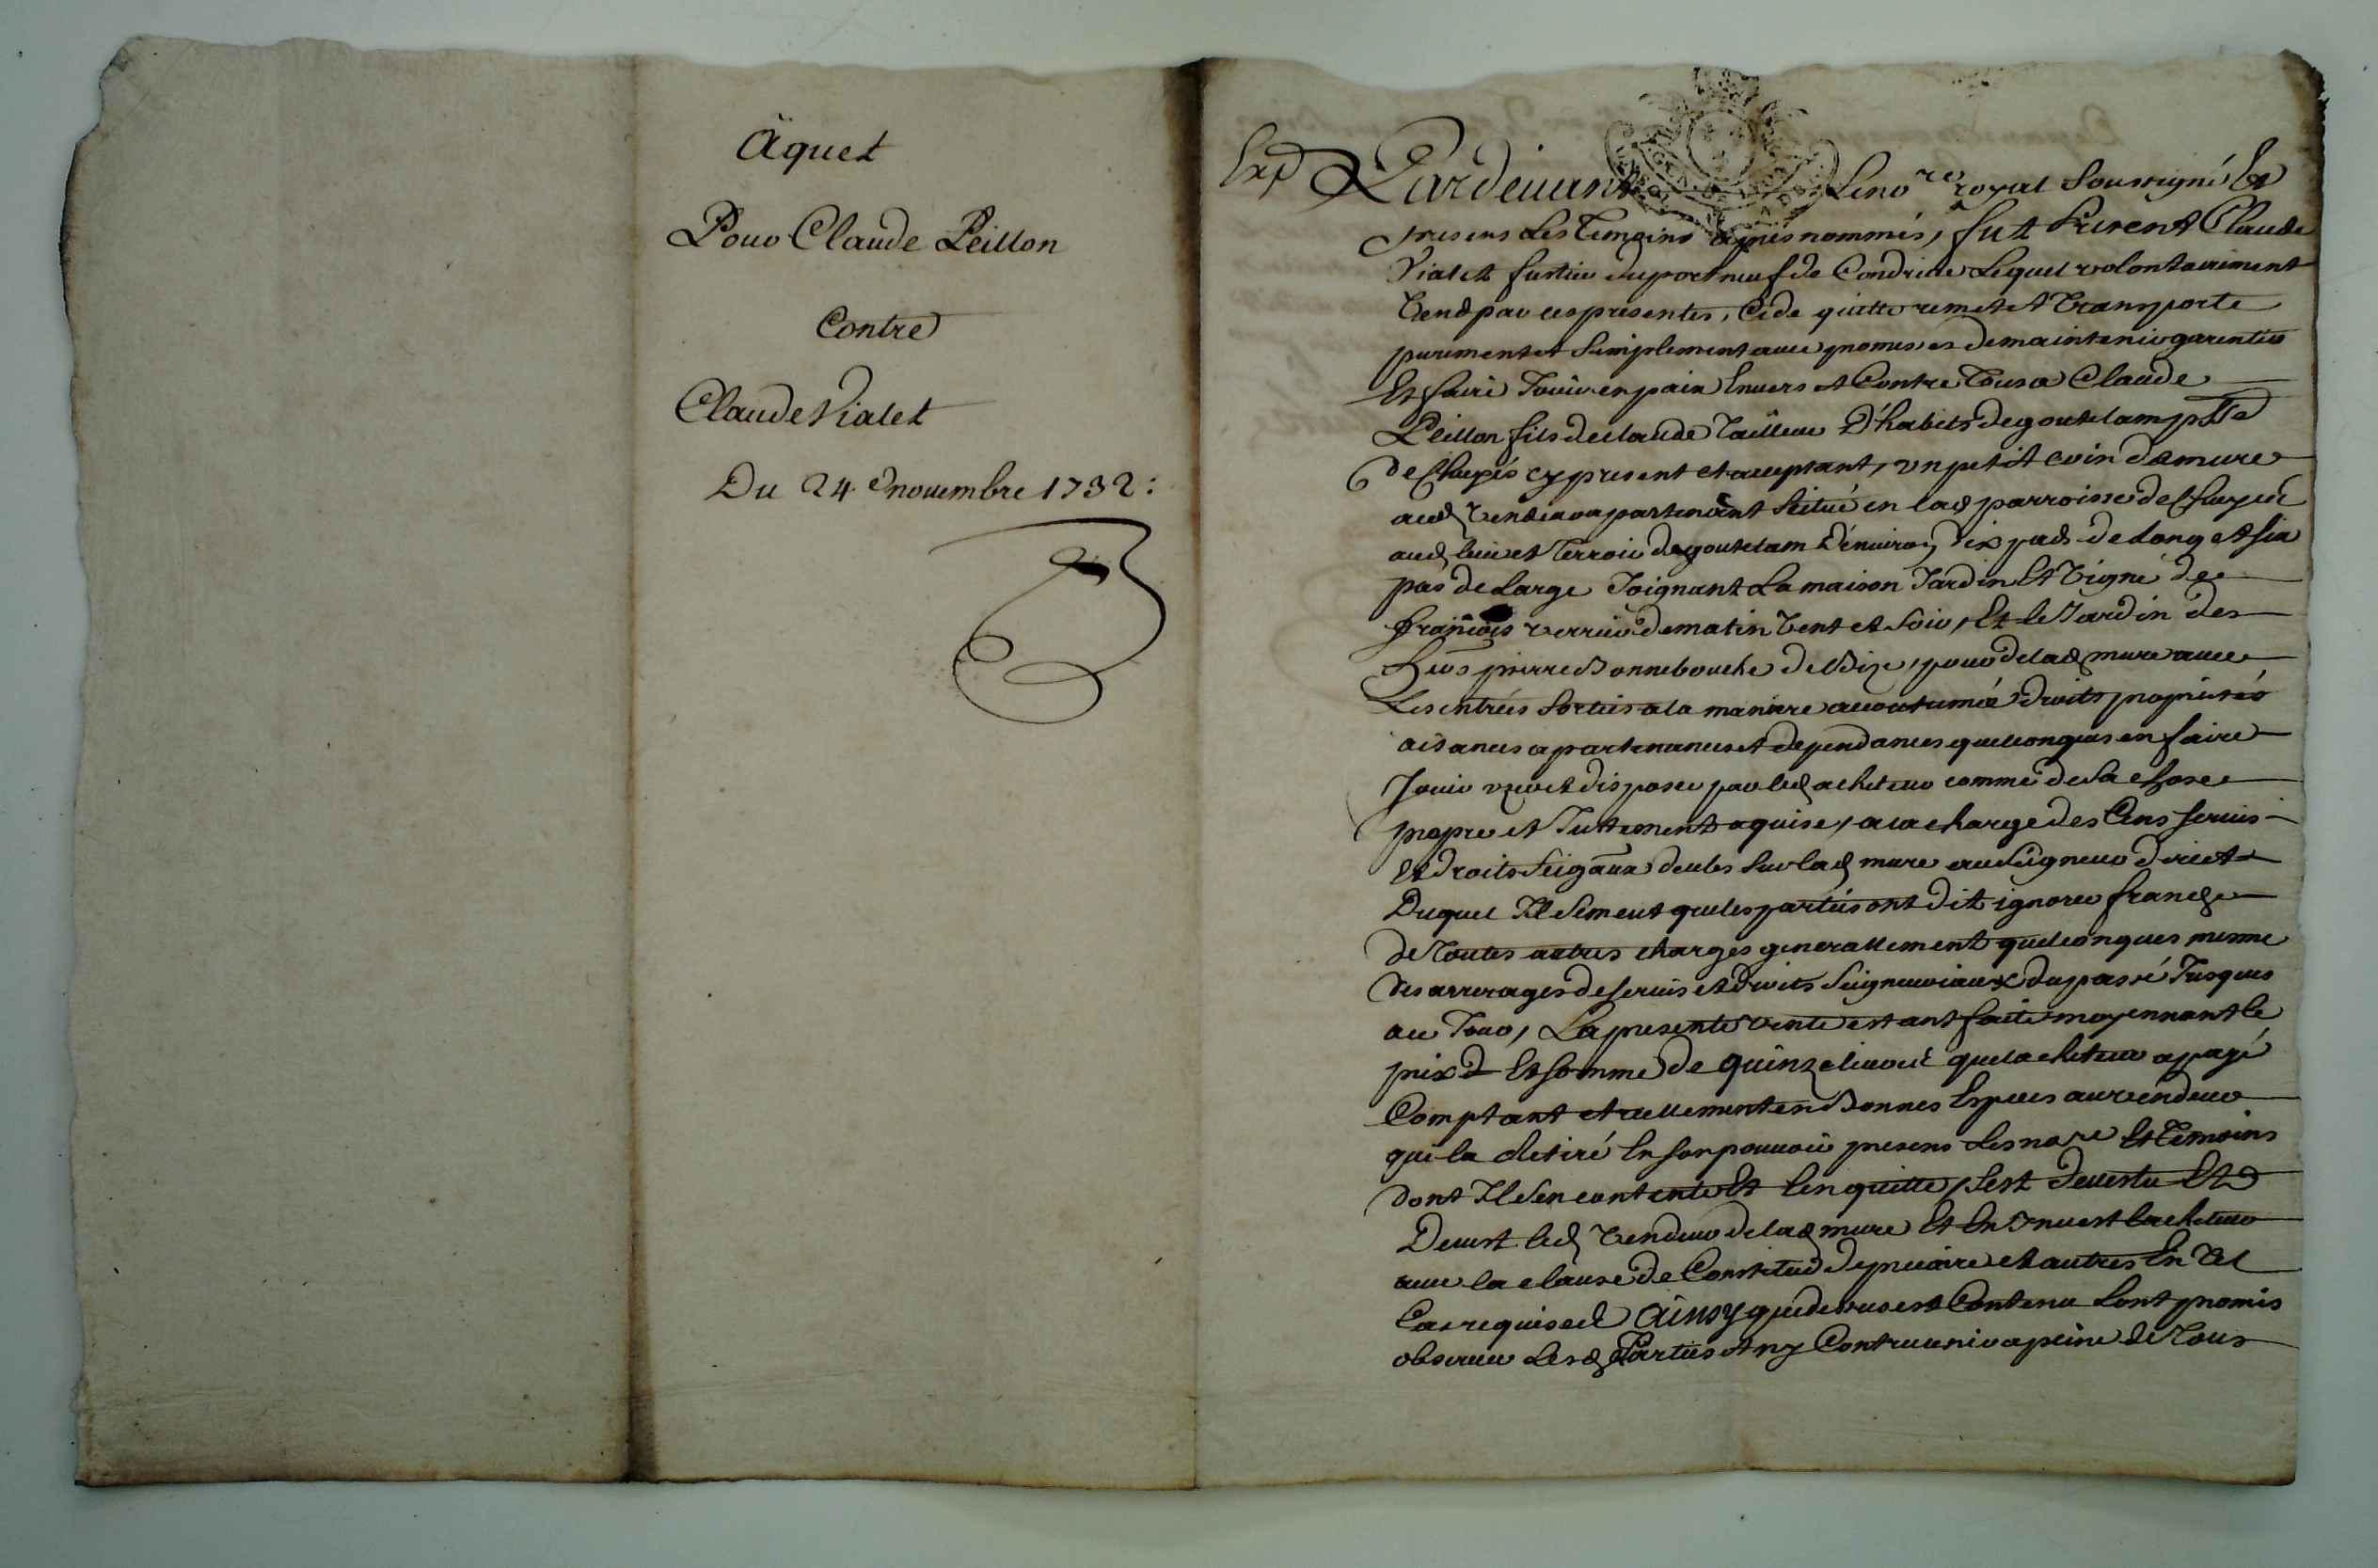 Aquet
Pour Claude Peillon
Contre
Claude Vialet
Du 24 novembre 1732:
Exp
Pardevant Le no.re royal soussigné Et
presens Les Temoins apres nommés, fut Present Claude
Vialet du port neuf de Condrieu Lequel volontairement
Vend par ces presentes, Cede quitte remet et Transporte
purement et simplement avec promesses de maintenir garentir
Et faire Jouir en pain Envers et Contre Tous a Claude
Peillon fils de Claude Tailleur D'habits de goutelam psse
de Chuyés cy present et acceptant, un petit coin de mure
aud vendeur apartenant scitué en lad parroisse de Chuyés
aud lieu et Terroir de goutelam D'environ dix pas de Long et six
pas de Large Joignant La maison Jardin Et Vigne de
françois verrier de matin Vent et Soir, Et le Jardin des
heos pierre Bonnebouche de Bize, pour de lad mure avec
Les entrées sorties a la maniere accoutumée droits proprietés
aisances apartenances et dependances quelconques en faire
Jouir user et disposer par led acheteur comme de sa chose
propre et Justement aquise, a la charge des Cens servis
Et droits seigaux deubs sur lad mure au seigneur direct
Duquel Il se meut que les parties ont dit ignorer franche
de Toutes autres charges generallement quelconques mesme
des arrerages de servis et droits seigneuriaux du passé Jusques
au Jour, La presente vente estant faite moyennant le
prix Et somme de quinze livres que lacheteur a payé
Comptant et reellement en Bonnes Especes au vendeur
qui la Retiré En son pouvoir presens Les nore Et Temoins
dont Il sen contente Et len quitte, sest devestu Et
Devest led vendeur de lad mure Et En Invest lacheteur
avec la clause de Constitud de precaire et autres En tel
Cas requises Ainsy que dessus est Contenu Lont promis
observer Lesd Parties et ny Contrevenir a peine de Tous